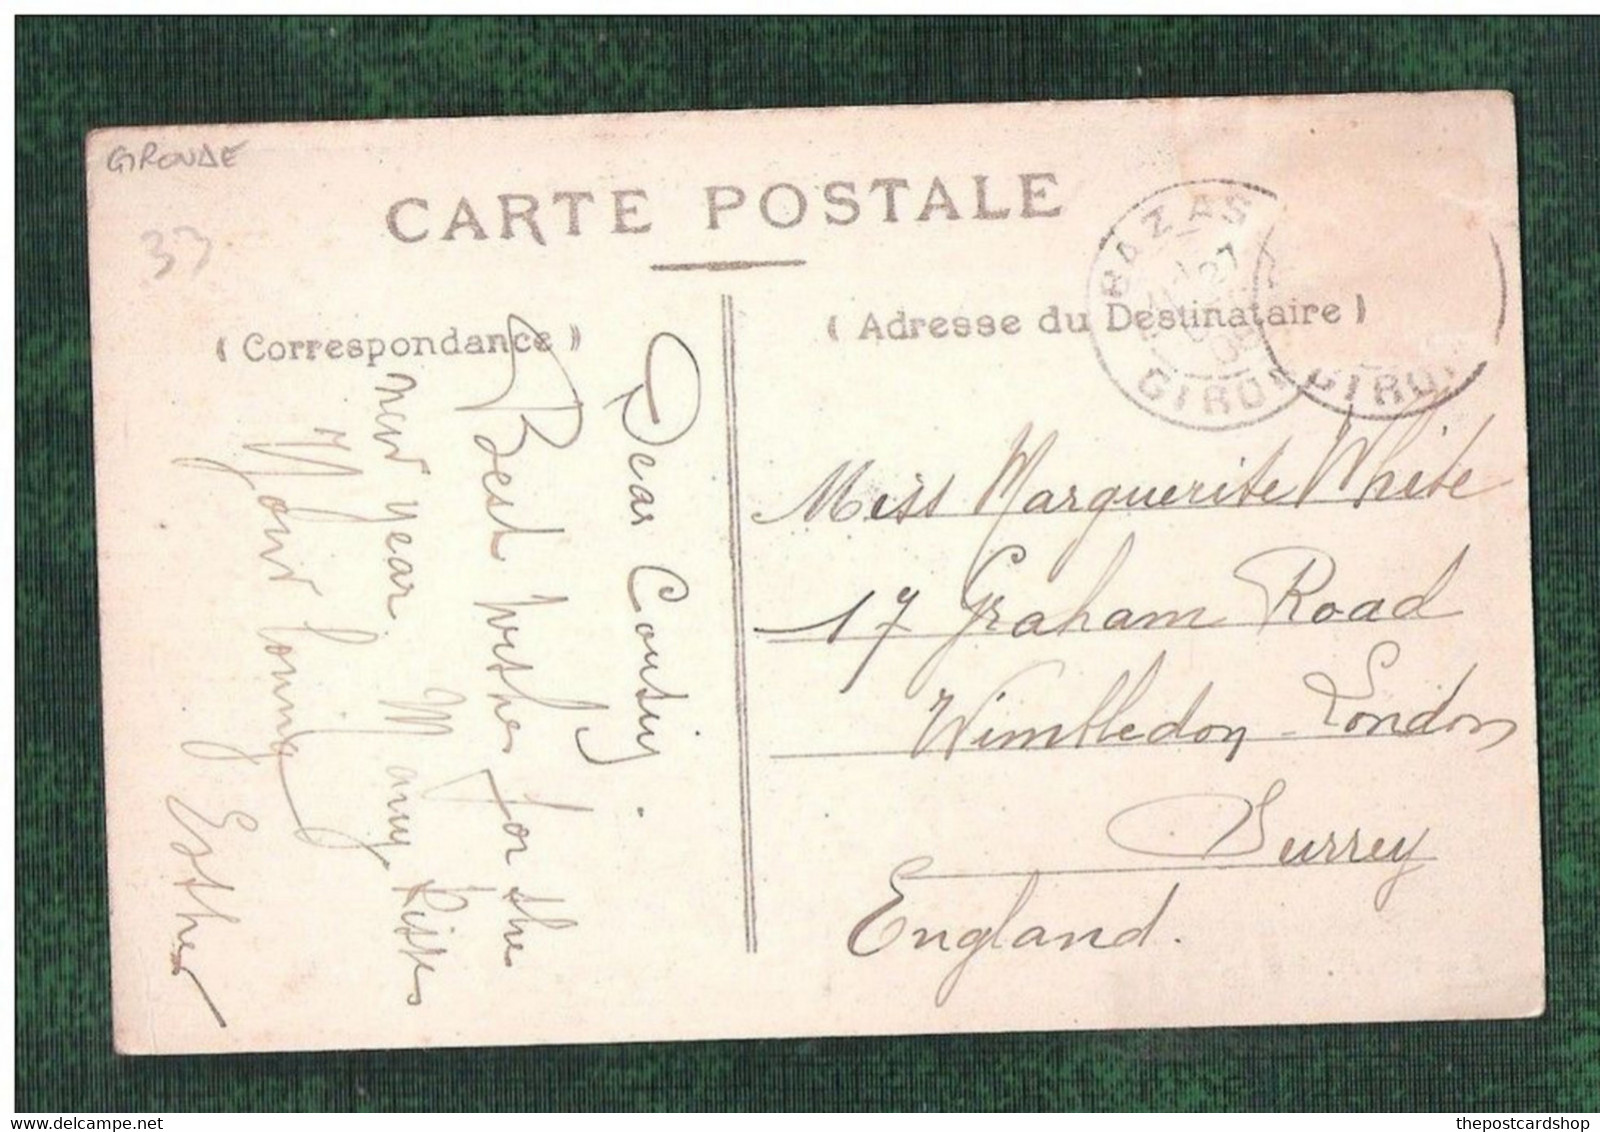 GIRONDE
33
CARTE POSTALE
( Correspondance )
( Adresse du Destinataire )
BAZAS
27
09
GIRON
GIRON
Dear Cousin,
Best wishes for the
new year Many kisses
Your loving
Esther
Miss Marguerite White
17 Graham Road
Wimbledon - London
Surrey
England.
thepostcardshop
delcampe.net